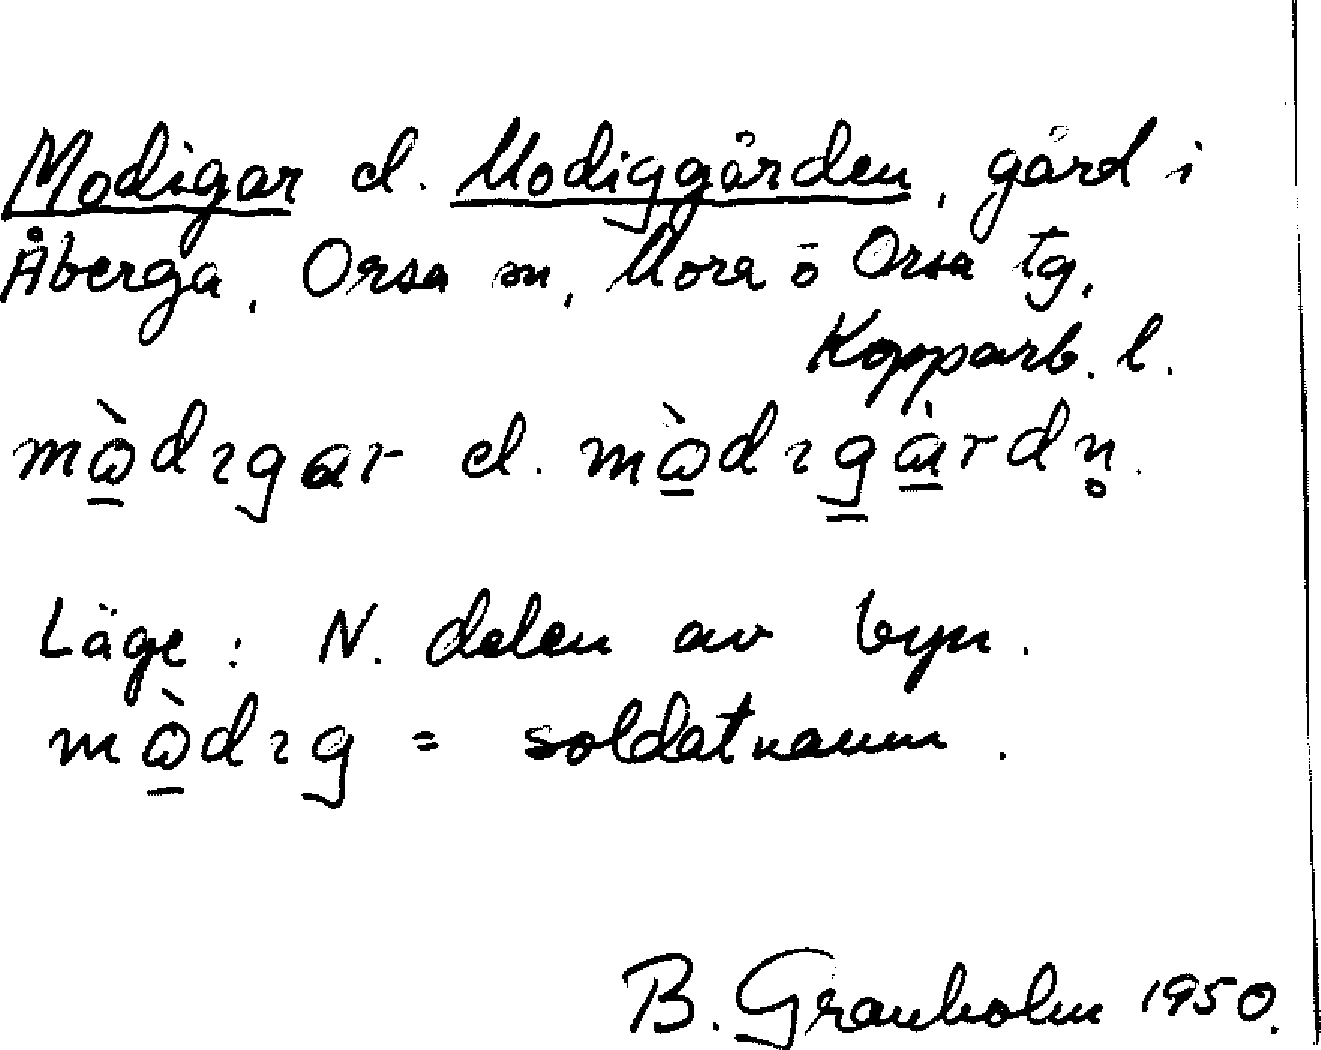 Modigar el. Modiggården, gård i
Åberga, Orsa sn, Mora o Orsa tg,
Kopparb. l.
mòdıgar el. mòdıgàrdn̥.
Läge: N. delen av byn.
mòdıg = soldatnamn.
B. Granholm 1950.